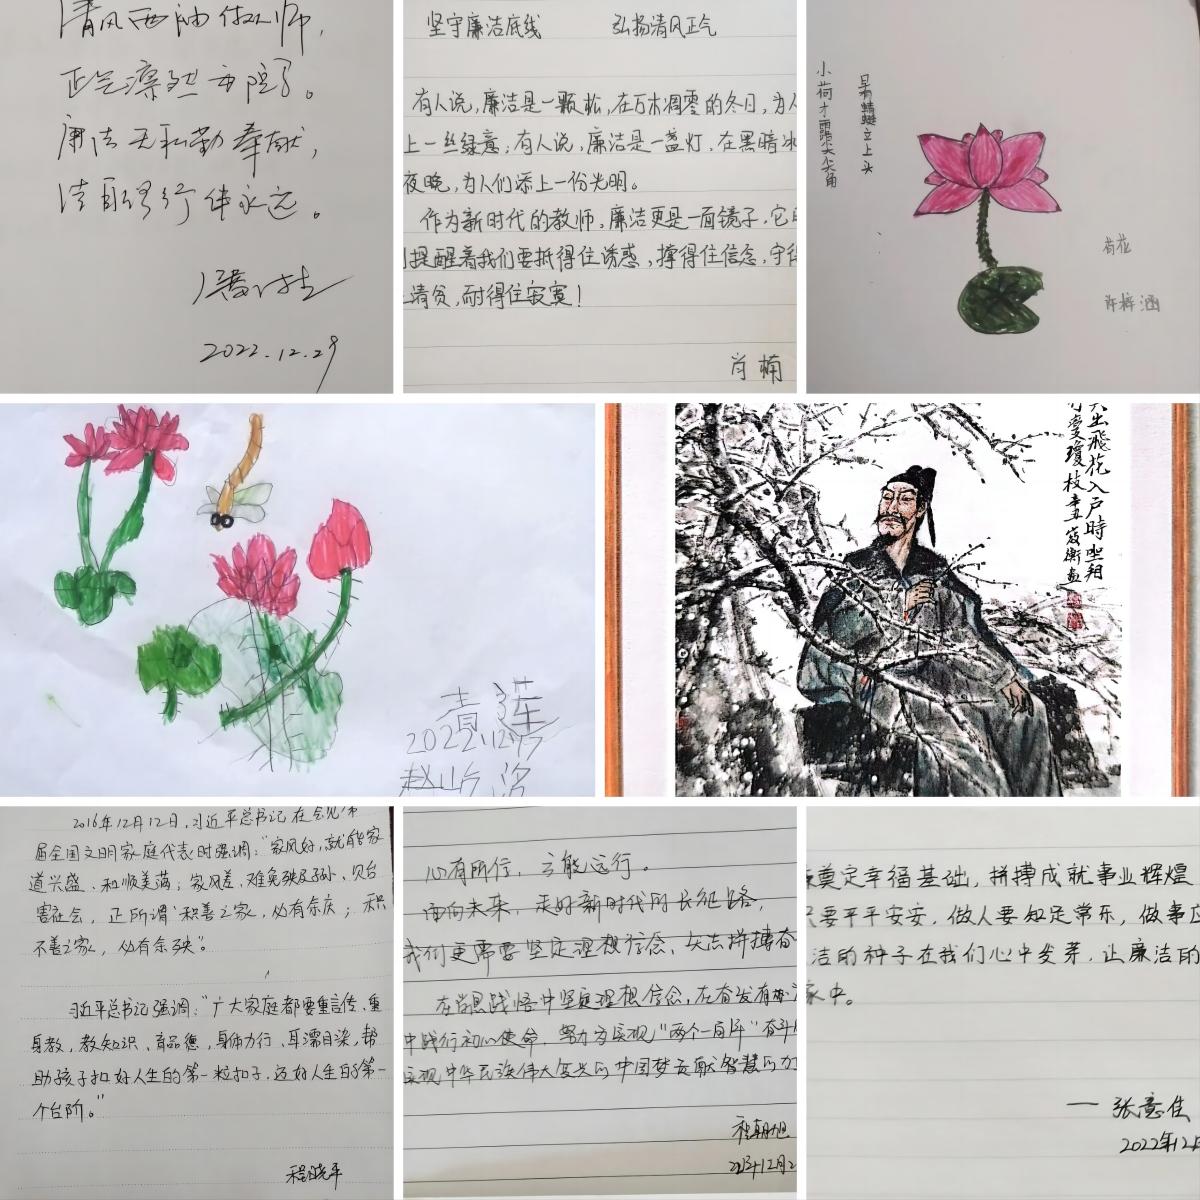 清风两袖做人师，
正气凛然市院子。
廉洁无私勤奉献，
洁
2022.12.29
坚守廉洁底线 弘扬清风正气
有人说，廉洁是一颗松，在万木凋零的冬日，为人
上一丝绿意；有人说，廉洁是一盏灯，在黑暗冰
夜晚，为人们添上一份光明。
作为新时代的教师，廉洁更是一面镜子，它
提醒着我们要抵得住诱惑，撑得住信念，守
清贫，耐得住寂寞！
肖楠
小荷才露尖尖角
早有蜻蜓立上头
荷花
许梓涵
青莲
2022.12.29
赵
出飛花入户時坐翔
变瓊枝辛丑
2016年12月12日，习近平总书记在会见第
届全国文明家庭代表时强调："家风好，就能家
道兴盛、和顺美满；家风差，难免殃及子孙、贝台
害社会，正所谓'积善之家，必有余庆；积
不善之家，必有余殃"。
习近平总书记强调："广大家庭都要重言传、重
身教，教知识、育品德，身体力行、耳濡目染，帮
助孩子扣好人生的第一粒扣子，迈好人生的第一
个台阶。"
程晓平
心有所信，方能远行。
面向未来，走好新时代的长征路，
我们更需要坚定理想信念、矢志拼搏奋
在学思践悟中坚定理想信念，在奋发有为
中践行初心使命，努力为实现"两个一百年"奋斗
实现中华民族伟大复兴的中国梦贡献智慧的力
程朝旭
奠定幸福基础，拼搏成就事业辉煌
只要平平安安，做人要知足常乐，做事应
洁的种子在我们心中发芽，让廉洁的
家中。
一 张意佳
2022年12月